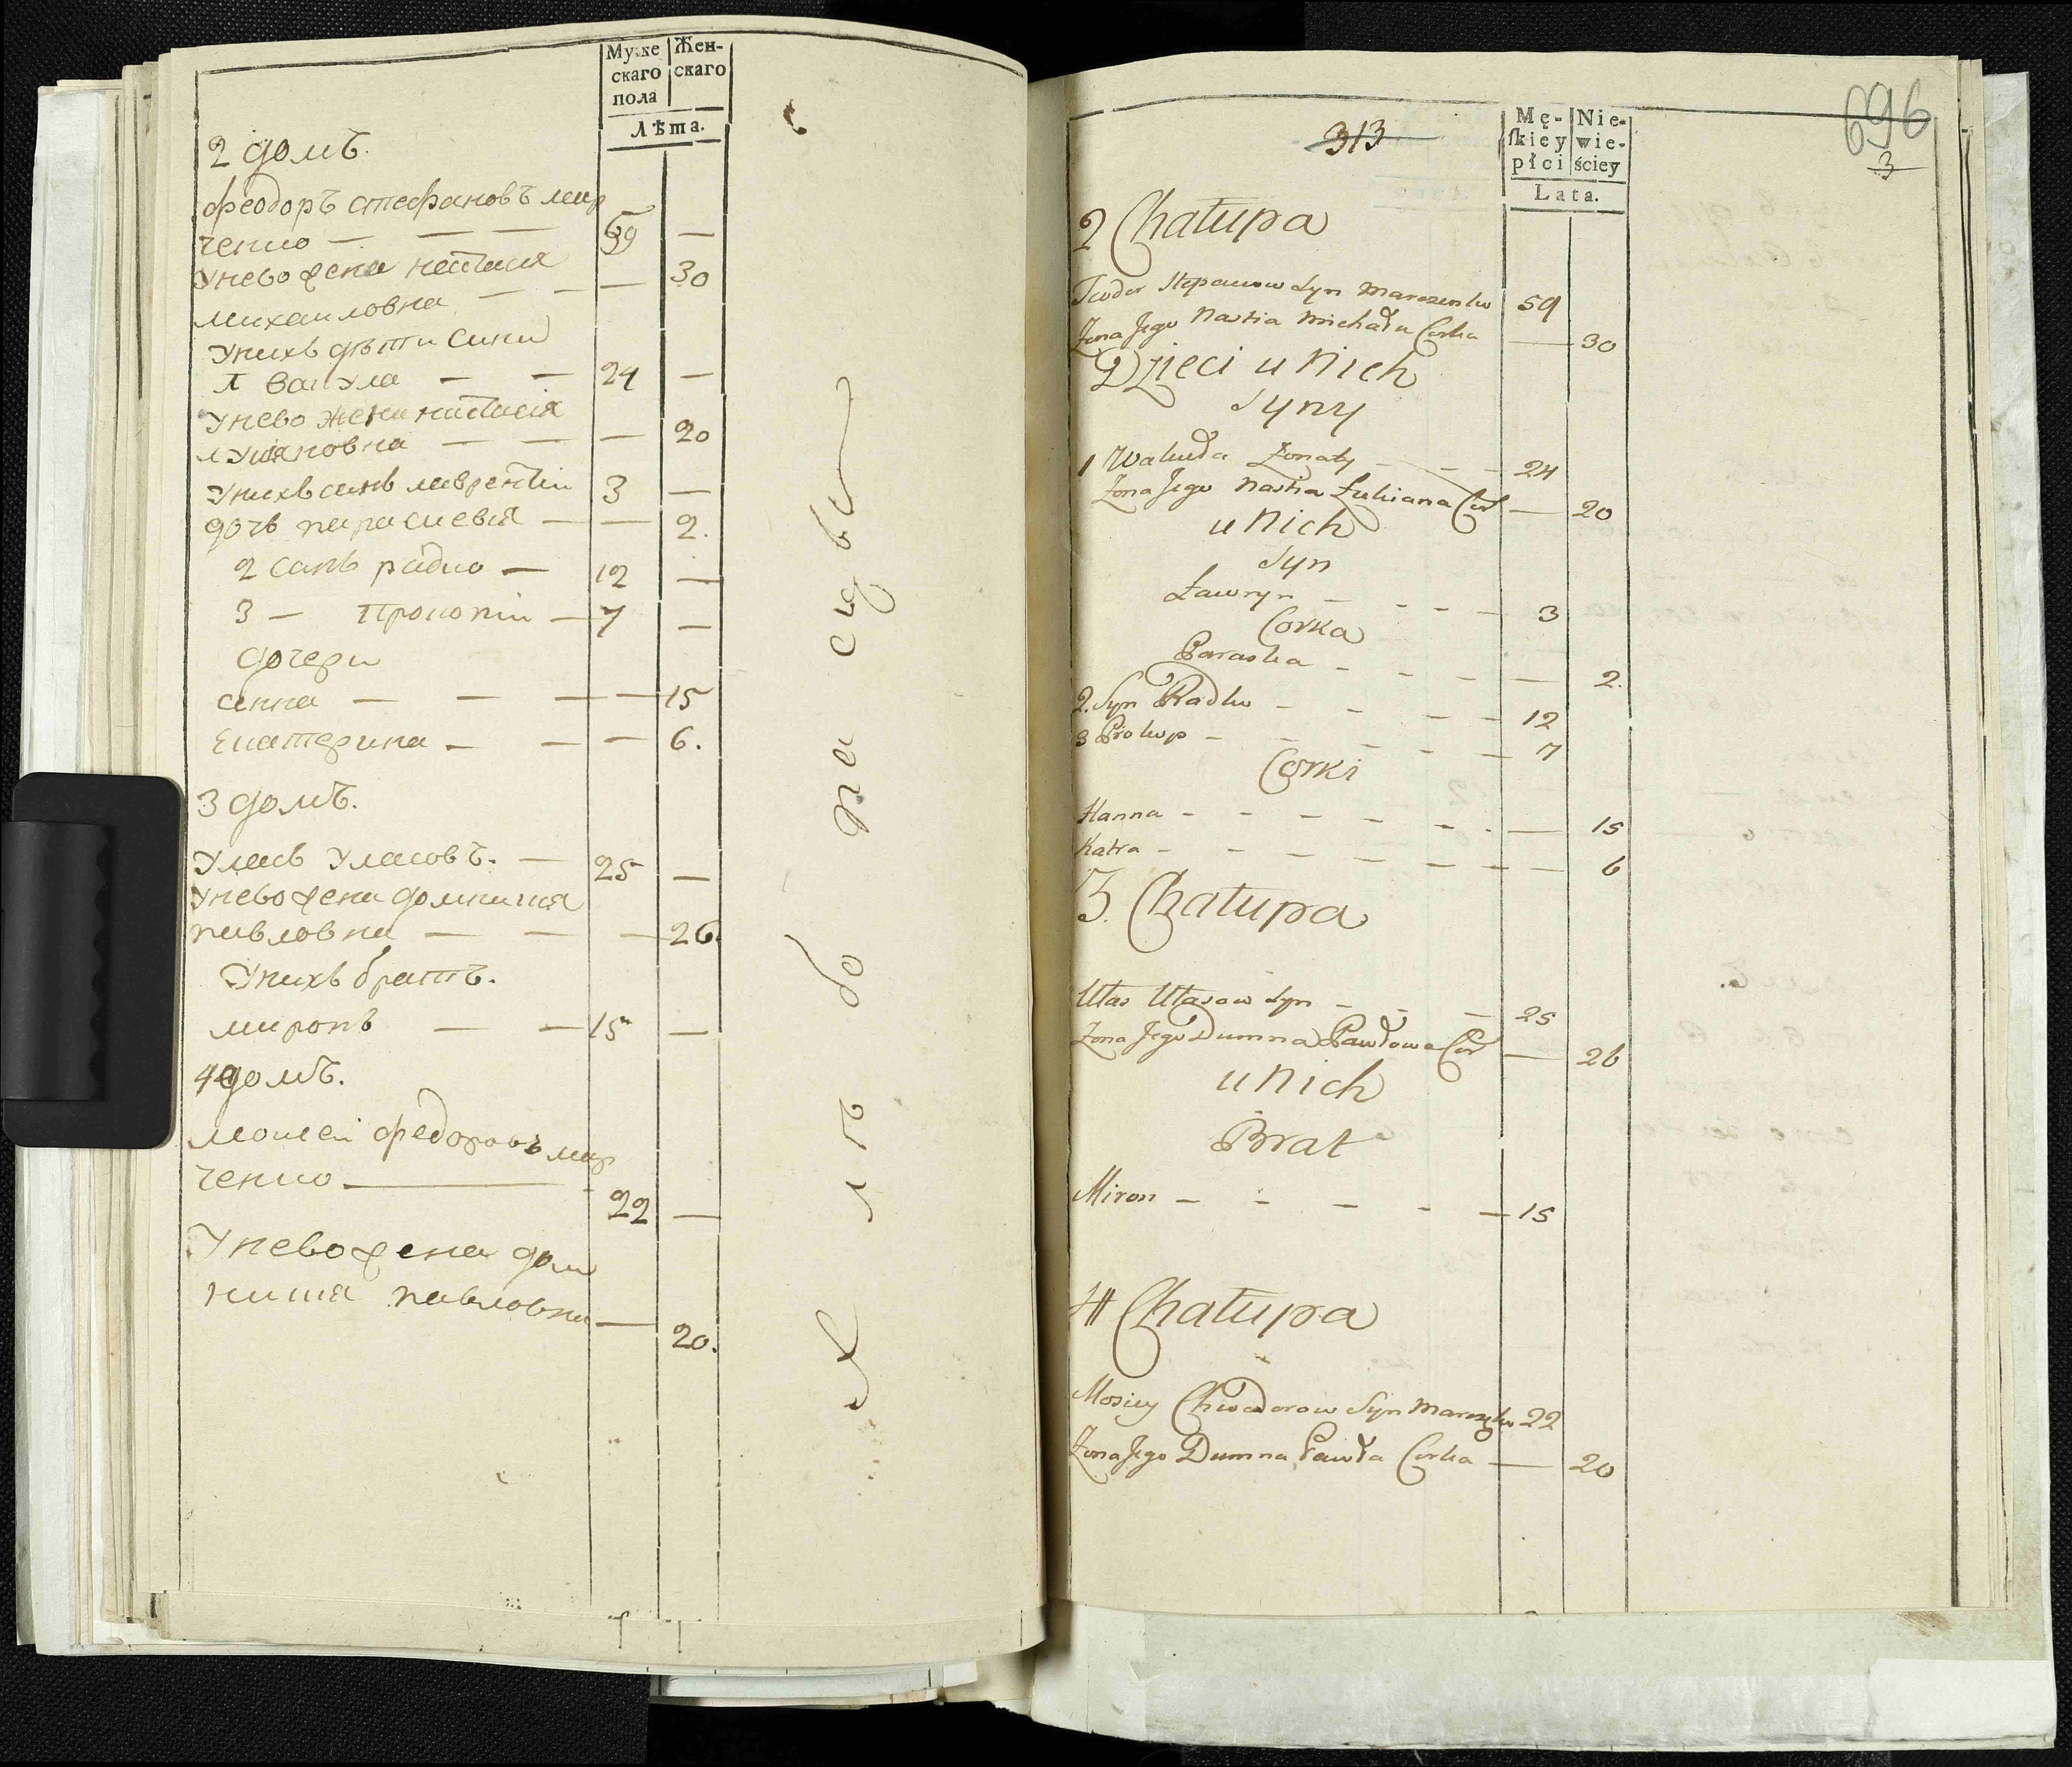 Муже Жен-
скаго скаго
пола
Лѣта.
2 домъ.
феодоръ стефановъ мар
ченко — — — 59 —
Унево жена настасия — 30
михаиловна — — —
Унихъ дѣти сини
1 вакула — — 24 —
Унево жена настасия
лукяновна — — — 20
Унихъ синъ лаврентии 3 —
дочъ параскевия — — 2.
2 синъ радко — 12 —
3 — Прокопии — 7 —
дочери
анна — — — — 15
Екатерина — — — 6.
3 домъ.
Уласъ Уласовъ. — 25 —
Унево жена домникия
павловна — — — 26.
Унихъ братъ.
миронъ — — 15 —
4 домъ.
моисеи федоровъ мар
ченко — 22 —
Унево жена дом
никия павловна — 20.
696
3
313
Mę- Nie-
ſkiey wie-
płci ściey
Lata.
2 Chałupa
Teodor Stepanow Syn Marczenko 59
Zona Jego Nastia Michała Corka — 30
Dzieci u Nich
Syny
1 Wakuła Zonaty - - - 24
Zona Jego Nastia Łukiana Cor — 20
u Nich
Syn
Ławryn - - - - 3
Corka
Paraska - - - - — 2.
2. Syn Radko - - - - 12
3 Prokop - - - - - 7
Corki
Hanna - - - - - - — 15
Katra - - - - - - - — 6
3. Chałupa
Ułas Ułasow Syn - - - 25
Zona Jego Dumna Pawłowa Cor — 26
u Nich
Brat
Miron - - - - - 15
4 Chałupa
Mosiey Chwedorow Syn Marczenko 22
Zona Jego Dumna Pawła Corka — 20